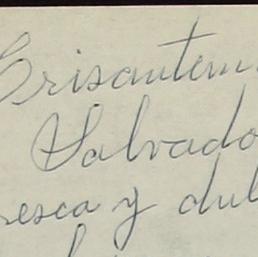 Crisantem
Salvado
resca y dul